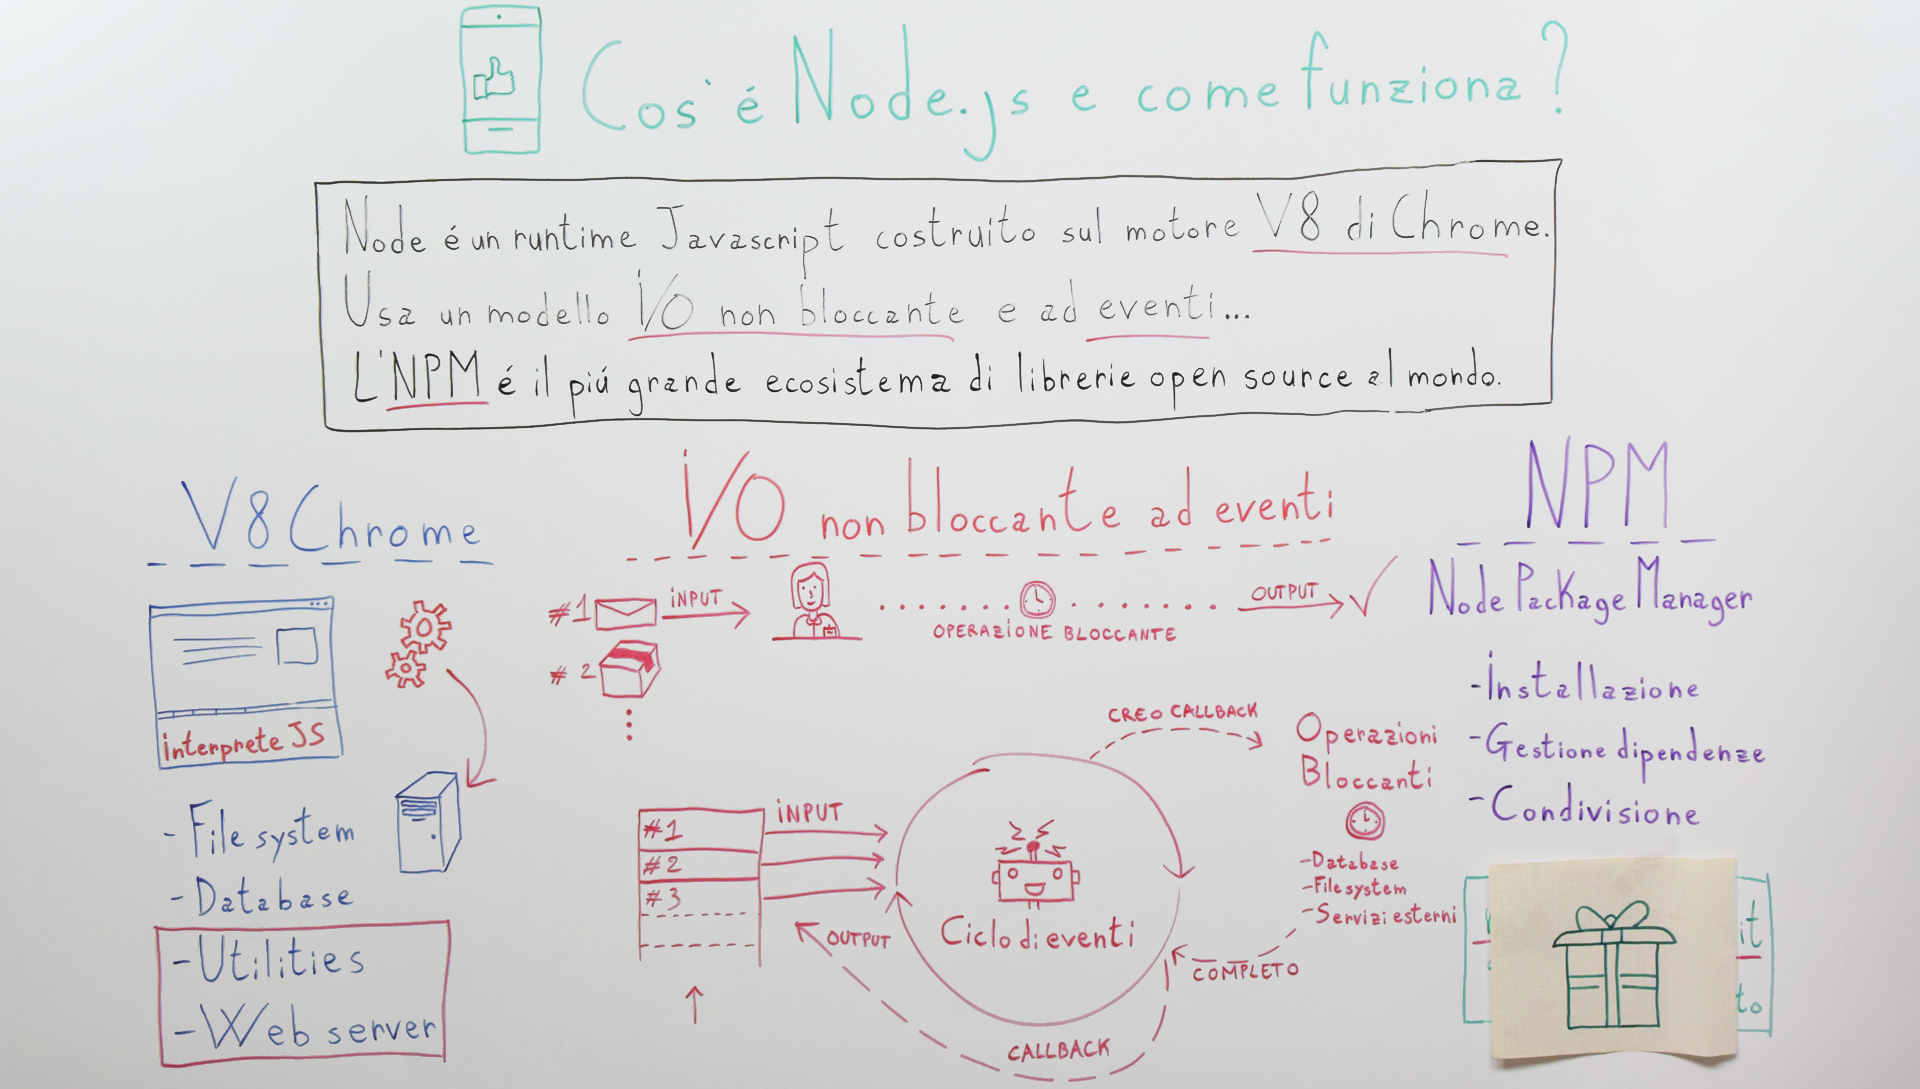 Cos'é Node.js e come funziona?
Node é un runtime Javascript costruito sul motore V8 di Chrome.
Usa un modello i/O non bloccante e ad eventi...
L'NPM é il piú grande ecosistema di librerie open source al mondo.
V8 Chrome
interprete JS
- File system
- Database
- Utilities
- Web server
i/O non bloccante ad eventi
#1
iNPUT
OPERAZiONE BLOCCANTE
OUTPUT
# 2
CREO CALLBACK
Operazioni
Bloccanti
- Database
- File system
- Servizi esterni
#1
#2
#3
iNPUT
OUTPUT
Ciclo di eventi
COMPLETO
CALLBACK
NPM
Node Package Manager
- installazione
- Gestione dipendenze
- Condivisione
it
to